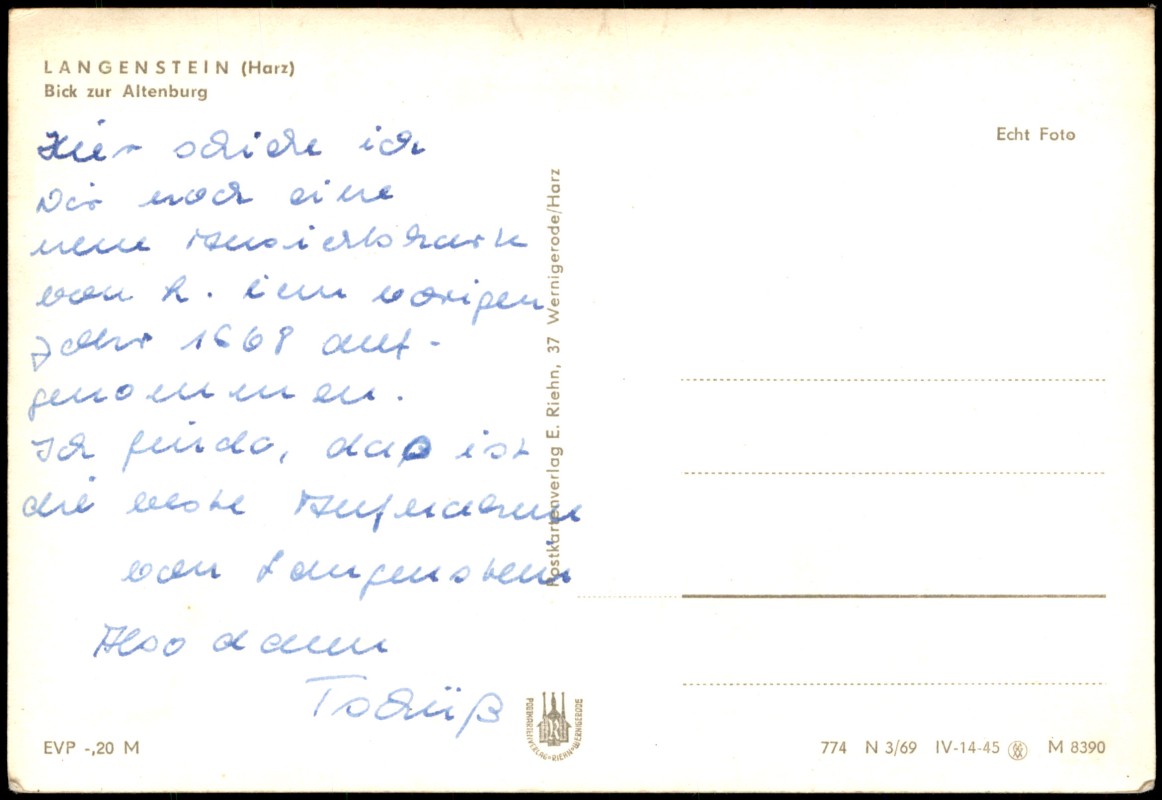 LANGENSTEIN (Harz)
Bick zur Altenburg
Echt Foto
Hier schicke ich
Dir noch eine
neue Ansichtskarte
von h. im vorigen
Jahr 1968 auf-
genommen.
Ich finde, daß ist
die beste Aufnahme
von Langenstein
Also dann
Tschüß
Postkartenverlag E. Riehn, 37 Wernigerode/Harz
POSTKARTENVERLAG•RIEHN•WERNIGERODE
EVP -,20 M
774 N 3/69 IV-14-45 M 8390